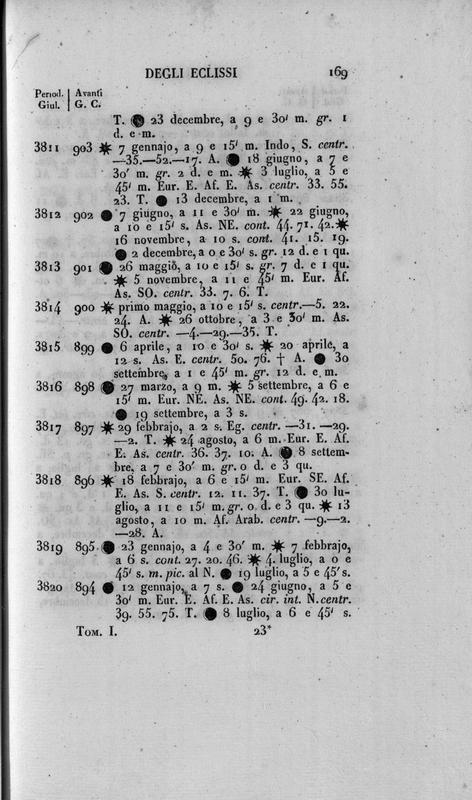 DEGLI ECLISSI 169
Period. | Avanti
Giul. | G. C.
T. ● 23 decembre, a 9 e 30' m. gr. 1
d. e m.
3811 903 ✷ 7 gennajo, a 9 e 15' m. Indo, S. centr.
—35.—52.—17. A. ● 18 giugno, a 7 e
30' m. gr. 2 d. e m. ✷ 3 luglio, a 5 e
45' m. Eur. E. Af. E. As. centr. 33. 55.
23. T. ● 13 decembre, a 1 m.
3812 902 ● 7 giugno, a 11 e 30' m. ✷ 22 giugno,
a 10 e 15' s. As. NE. cont. 44. 71. 42. ✷
16 novembre, a 10 s. cont. 41. 15. 19.
● 2 decembre, a 0 e 30' s. gr. 12 d. e 1 qu.
3813 901 ● 26 maggio, a 10 e 15' s. gr. 7 d. e 1 qu.
✷ 5 novembre, a 11 e 45' m. Eur. Af.
As. SO. centr. 33. 7. 6. T.
3814 900 ✷ primo maggio, a 10 e 15' s. centr.—5. 22.
24. A. ✷ 26 ottobre, a 3 e 30' m. As.
SO. centr. —4.—29.—35. T.
3815 899 ● 6 aprile, a 10 e 30' s. ✷ 20 aprile, a
12 s. As. E. centr. 50. 76. † A. ● 30
settembre, a 1 e 45' m. gr. 12 d. e m.
3816 898 ● 27 marzo, a 9 m. ✷ 5 settembre, a 6 e
15' m. Eur. NE. As. NE. cont. 49. 42. 18.
● 19 settembre, a 3 s.
3817 897 ✷ 29 febbrajo, a 2 s. Eg. centr. —31. —29.
—2. T. ✷ 24 agosto, a 6 m. Eur. E. Af.
E. As. centr. 36. 37. 10. A. ● 8 settem-
bre, a 7 e 30' m. gr. 0 d. e 3 qu.
3818 896 ✷ 18 febbrajo, a 6 e 15' m. Eur. SE. Af.
E. As. S. centr. 12. 11. 37. T. ● 30 lu-
glio, a 11 e 15' m. gr. 0 d. e 3 qu. ✷ 13
agosto, a 10 m. Af. Arab. centr. —9.—2.
—28. A.
3819 895 ● 23 gennajo, a 4 e 30' m. ✷ 7 febbrajo,
a 6 s. cont. 27. 20. 46. ✷ 4 luglio, a 0 e
45' s. m. pic. al N. ● 19 luglio, a 5 e 45' s.
3820 894 ● 12 gennajo, a 7 s. ● 24 giugno, a 5 e
30' m. Eur. E. Af. E. As. cir. int. N. centr.
39. 55. 75. T. ● 8 luglio, a 6 e 45' s.
Tom. I. 23*